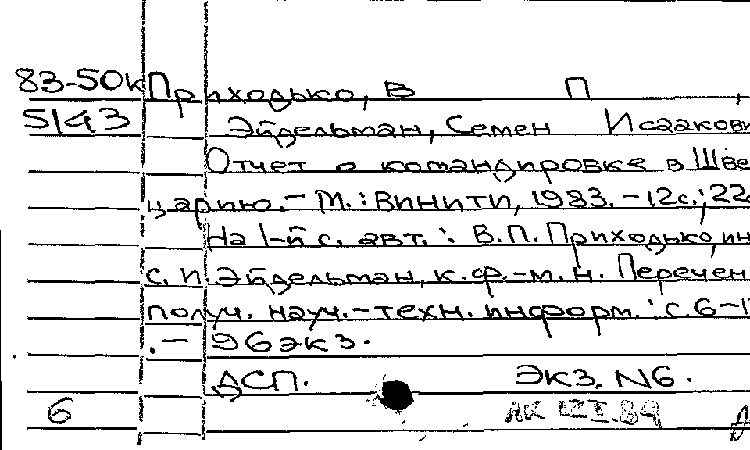 83-50к Приходько, В П ,
5143 Эйдельман, Семен Исаакови
Отчет о командировке в Шве
царию. - М. : ВИНИТИ, 1983. - 12с.; 22
На 1-й с. авт. : В.П. Приходько, ин
с. и. Эйдельман, к.ф.-м. н. Перечен
получ. науч.-техн. информ. : с. 6-1
. - 96 экз.
ДСП. ЭКЗ. N6.
6